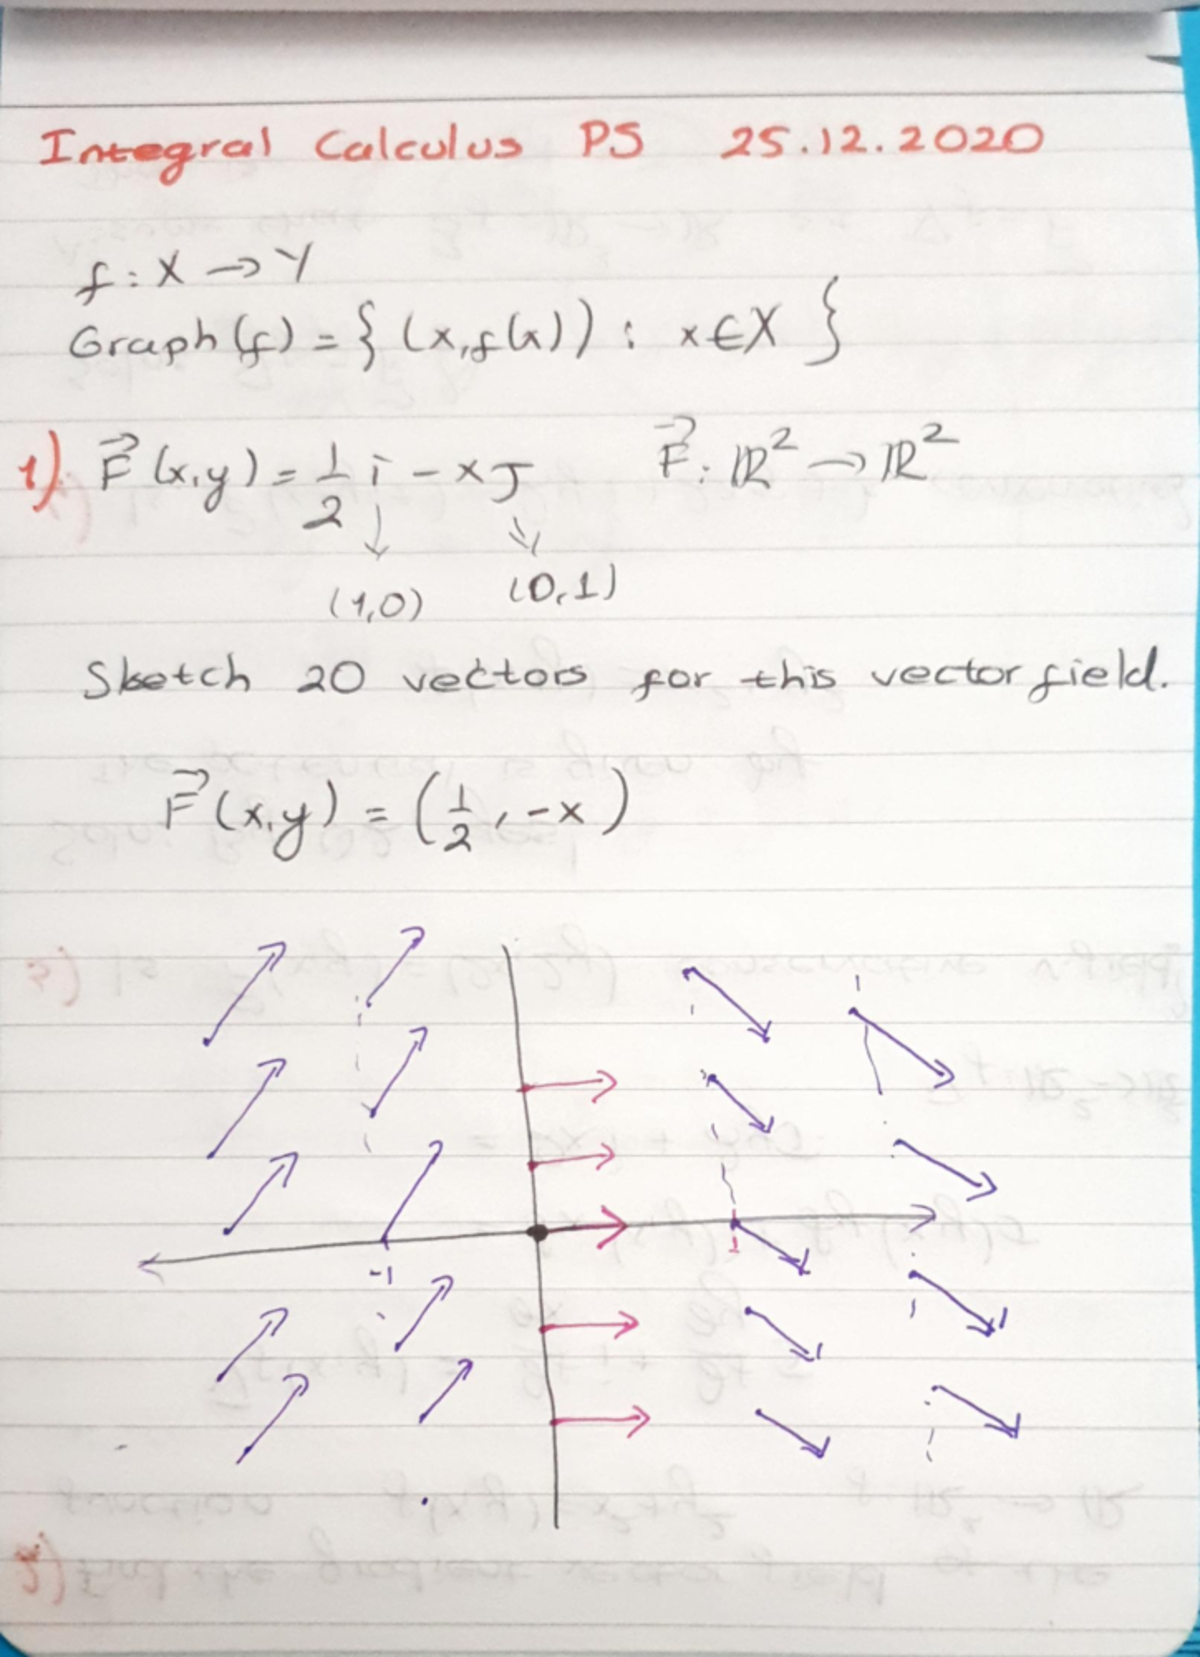 Integral Calculus PS 25.12.2020
f: X → Y
Graph(f) = { (x, f(x)) : x ∈ X }
1) F⃗(x,y) = 1/2 i - x J F⃗: ℝ² → ℝ²
(1,0) (0,1)
Sketch 20 vectors for this vector field.
F⃗(x,y) = (1/2, -x)
-1 1